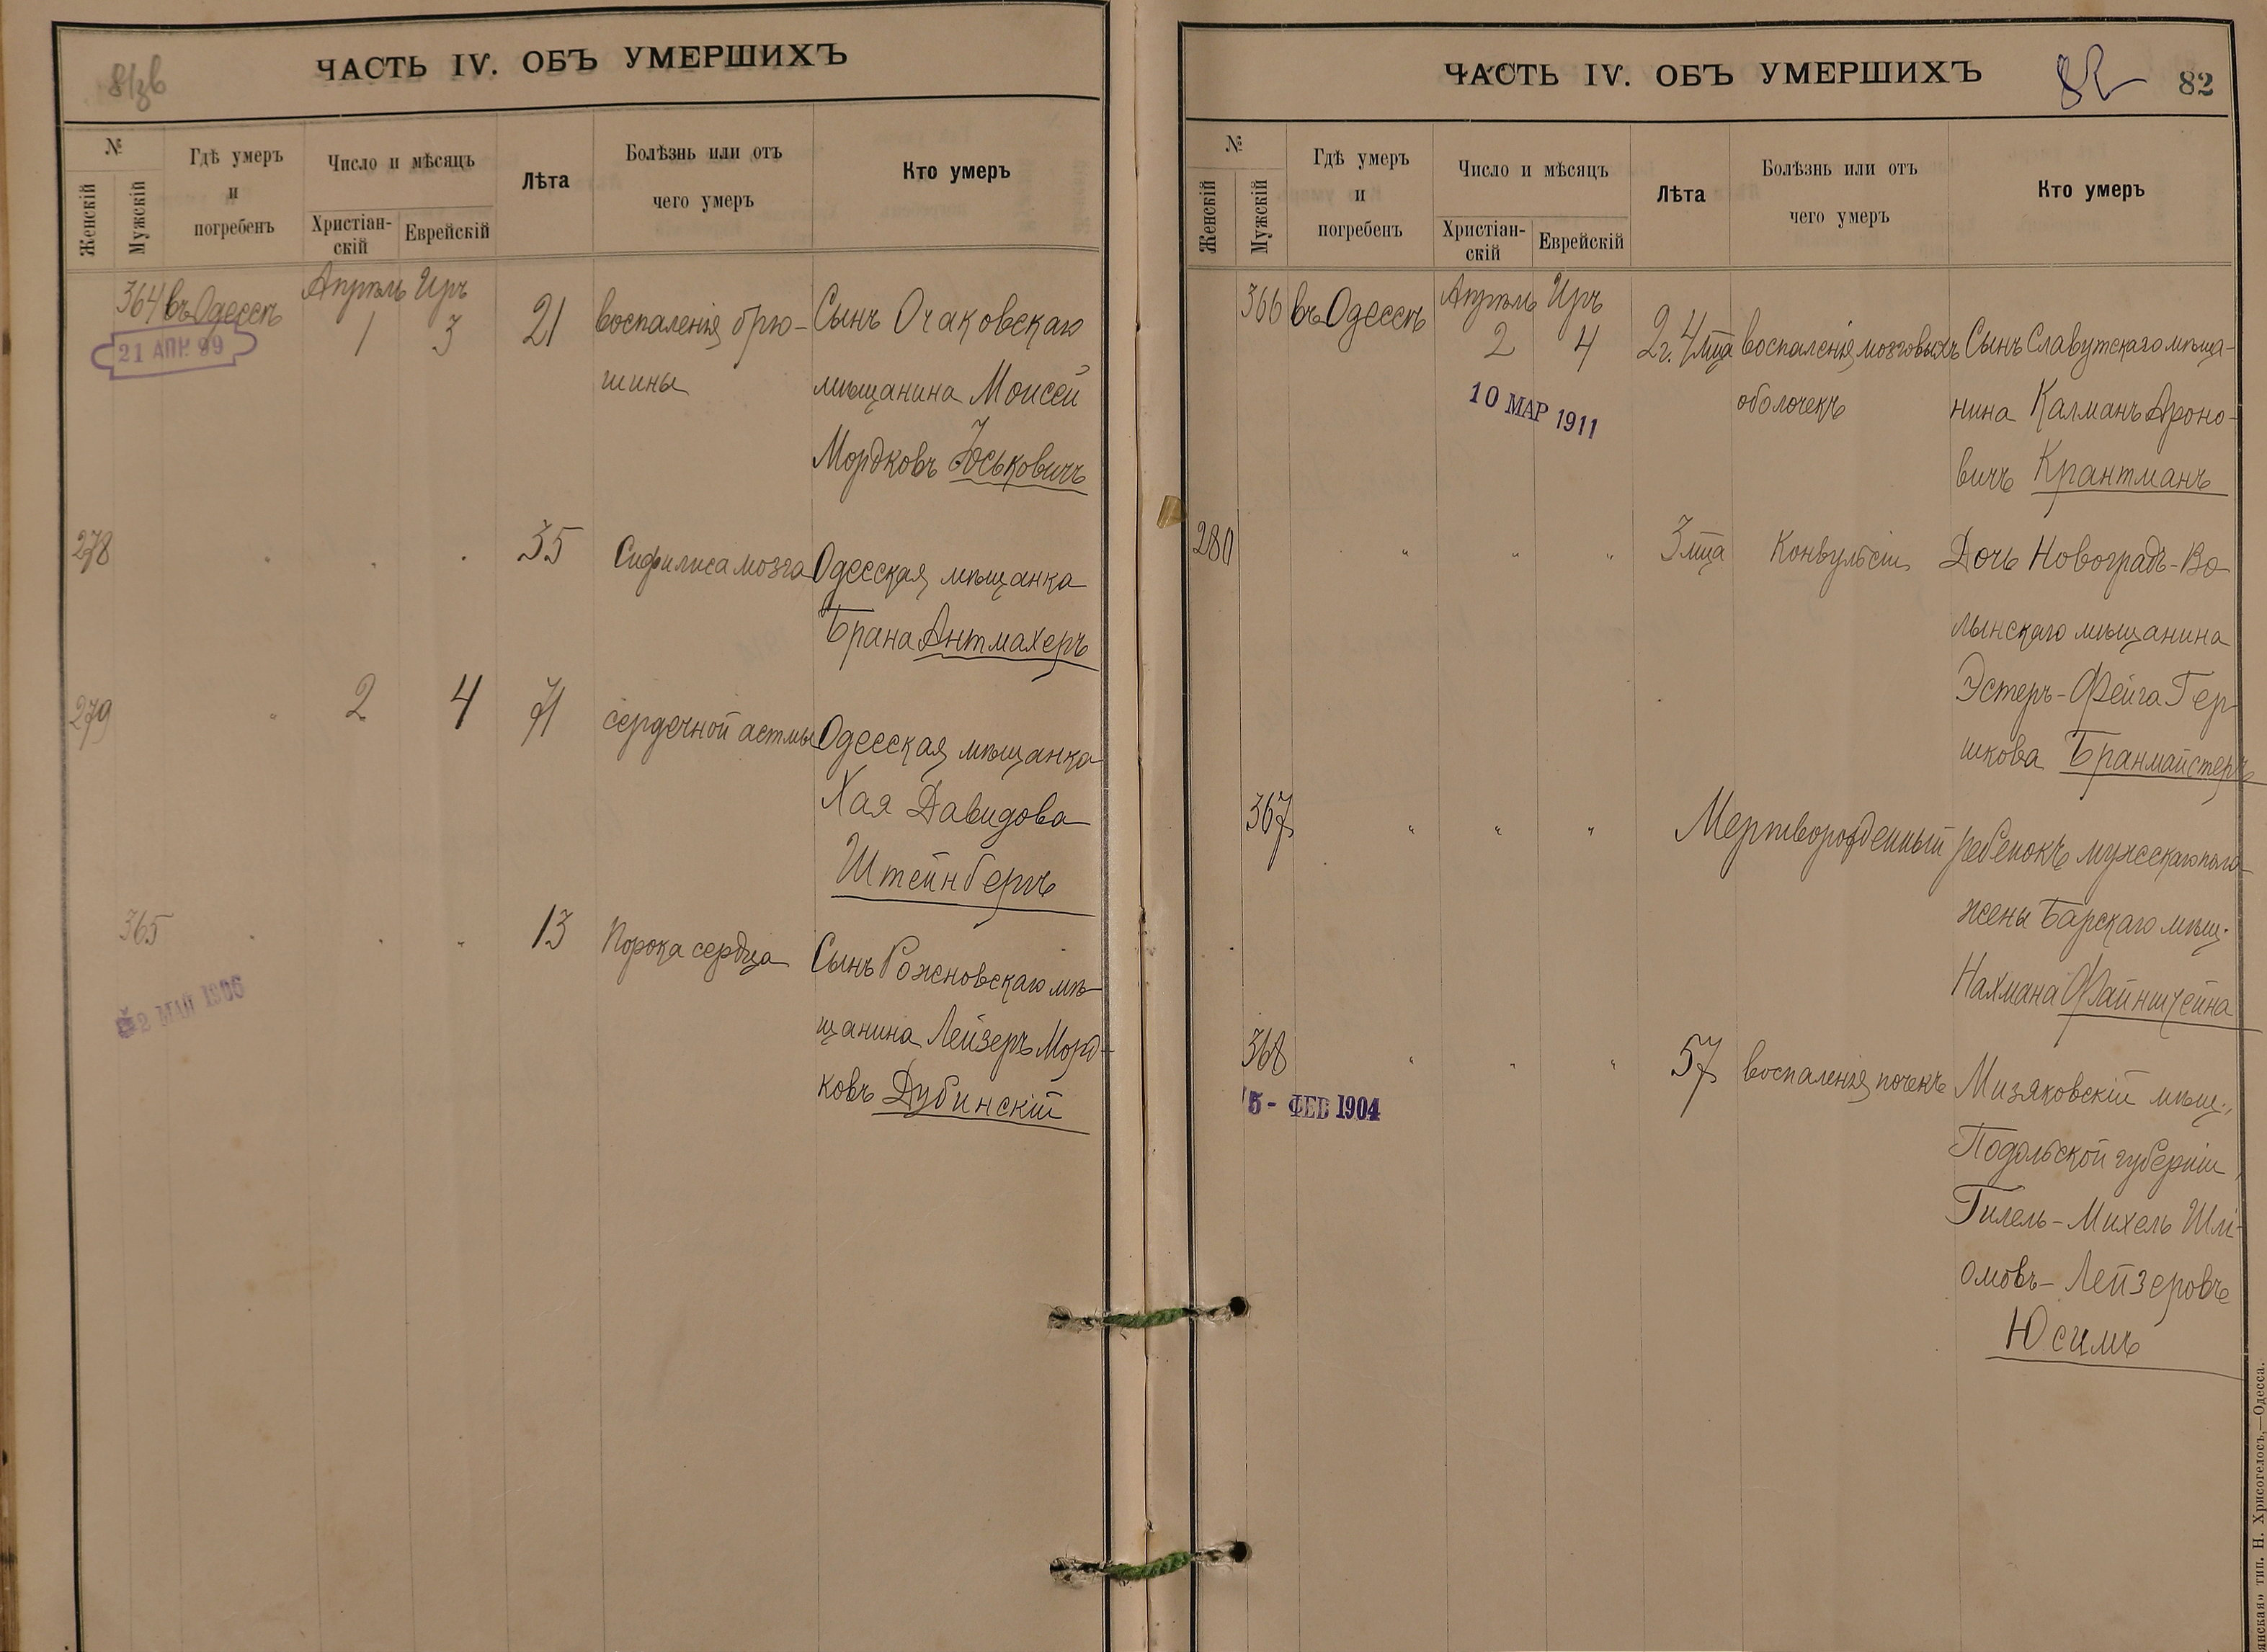 81зв
ЧАСТЬ IV. ОБЪ УМЕРШИХЪ
№
Женскій
Мужскій
Гдѣ умеръ
и
погребенъ
Число и мѣсяцъ
Христіан-
скій
Еврейскій
Лѣта
Болѣзнь или отъ
чего умеръ
Кто умеръ
364 въ Одессѣ Апрѣль Иръ
1 3 21 воспаленія брю- Сынъ Очаковскаго
21 АПР. 99
шины мѣщанина Моисей
Мордковъ Юськовичъ
278 35 Сифилиса мозга Одесская мѣщанка
Брана Антмахеръ
279 " 2 4 71 сердечной астмы Одесская мѣщанка
Хая Давидова
Штейнбергъ
365 " 13 Порока сердца Сынъ Рожновскаго мѣ-
2 МАЙ 1906
щанина Лейзеръ Морд-
ковъ Дубинскій
ЧАСТЬ IV. ОБЪ УМЕРШИХЪ
82
82
№
Женскій
Мужскій
Гдѣ умеръ
и
погребенъ
Число и мѣсяцъ
Христіан-
скій
Еврейскій
Лѣта
Болѣзнь или отъ
чего умеръ
Кто умеръ
366 въ Одессѣ Апрѣль Иръ
2 4 2 г. 4 мца воспаленія мозговыхъ Сынъ Славутскаго мѣща-
10 МАР 1911
оболочекъ нина Калманъ Ароно-
вичъ Крантманъ
280 " " " 3 мца Конвульсіи Дочь Новоградъ-Во-
лынскаго мѣщанина
Эстеръ-Фейга Гер-
шкова Бранмайстеръ
367 " " " Мертворожденный ребенокъ мужскаго пола
жены Барскаго мѣщ.
Нахмана Файнштейна
368 " " " 57 воспаленія почекъ Мизяковскій мѣщ.,
5- ФЕВ 1904
Подольской губерніи,
Гилель-Михель Шлі-
омовъ-Лейзеровъ
Юсимъ
тип. Н. Хрисогелосъ,—Одесса.